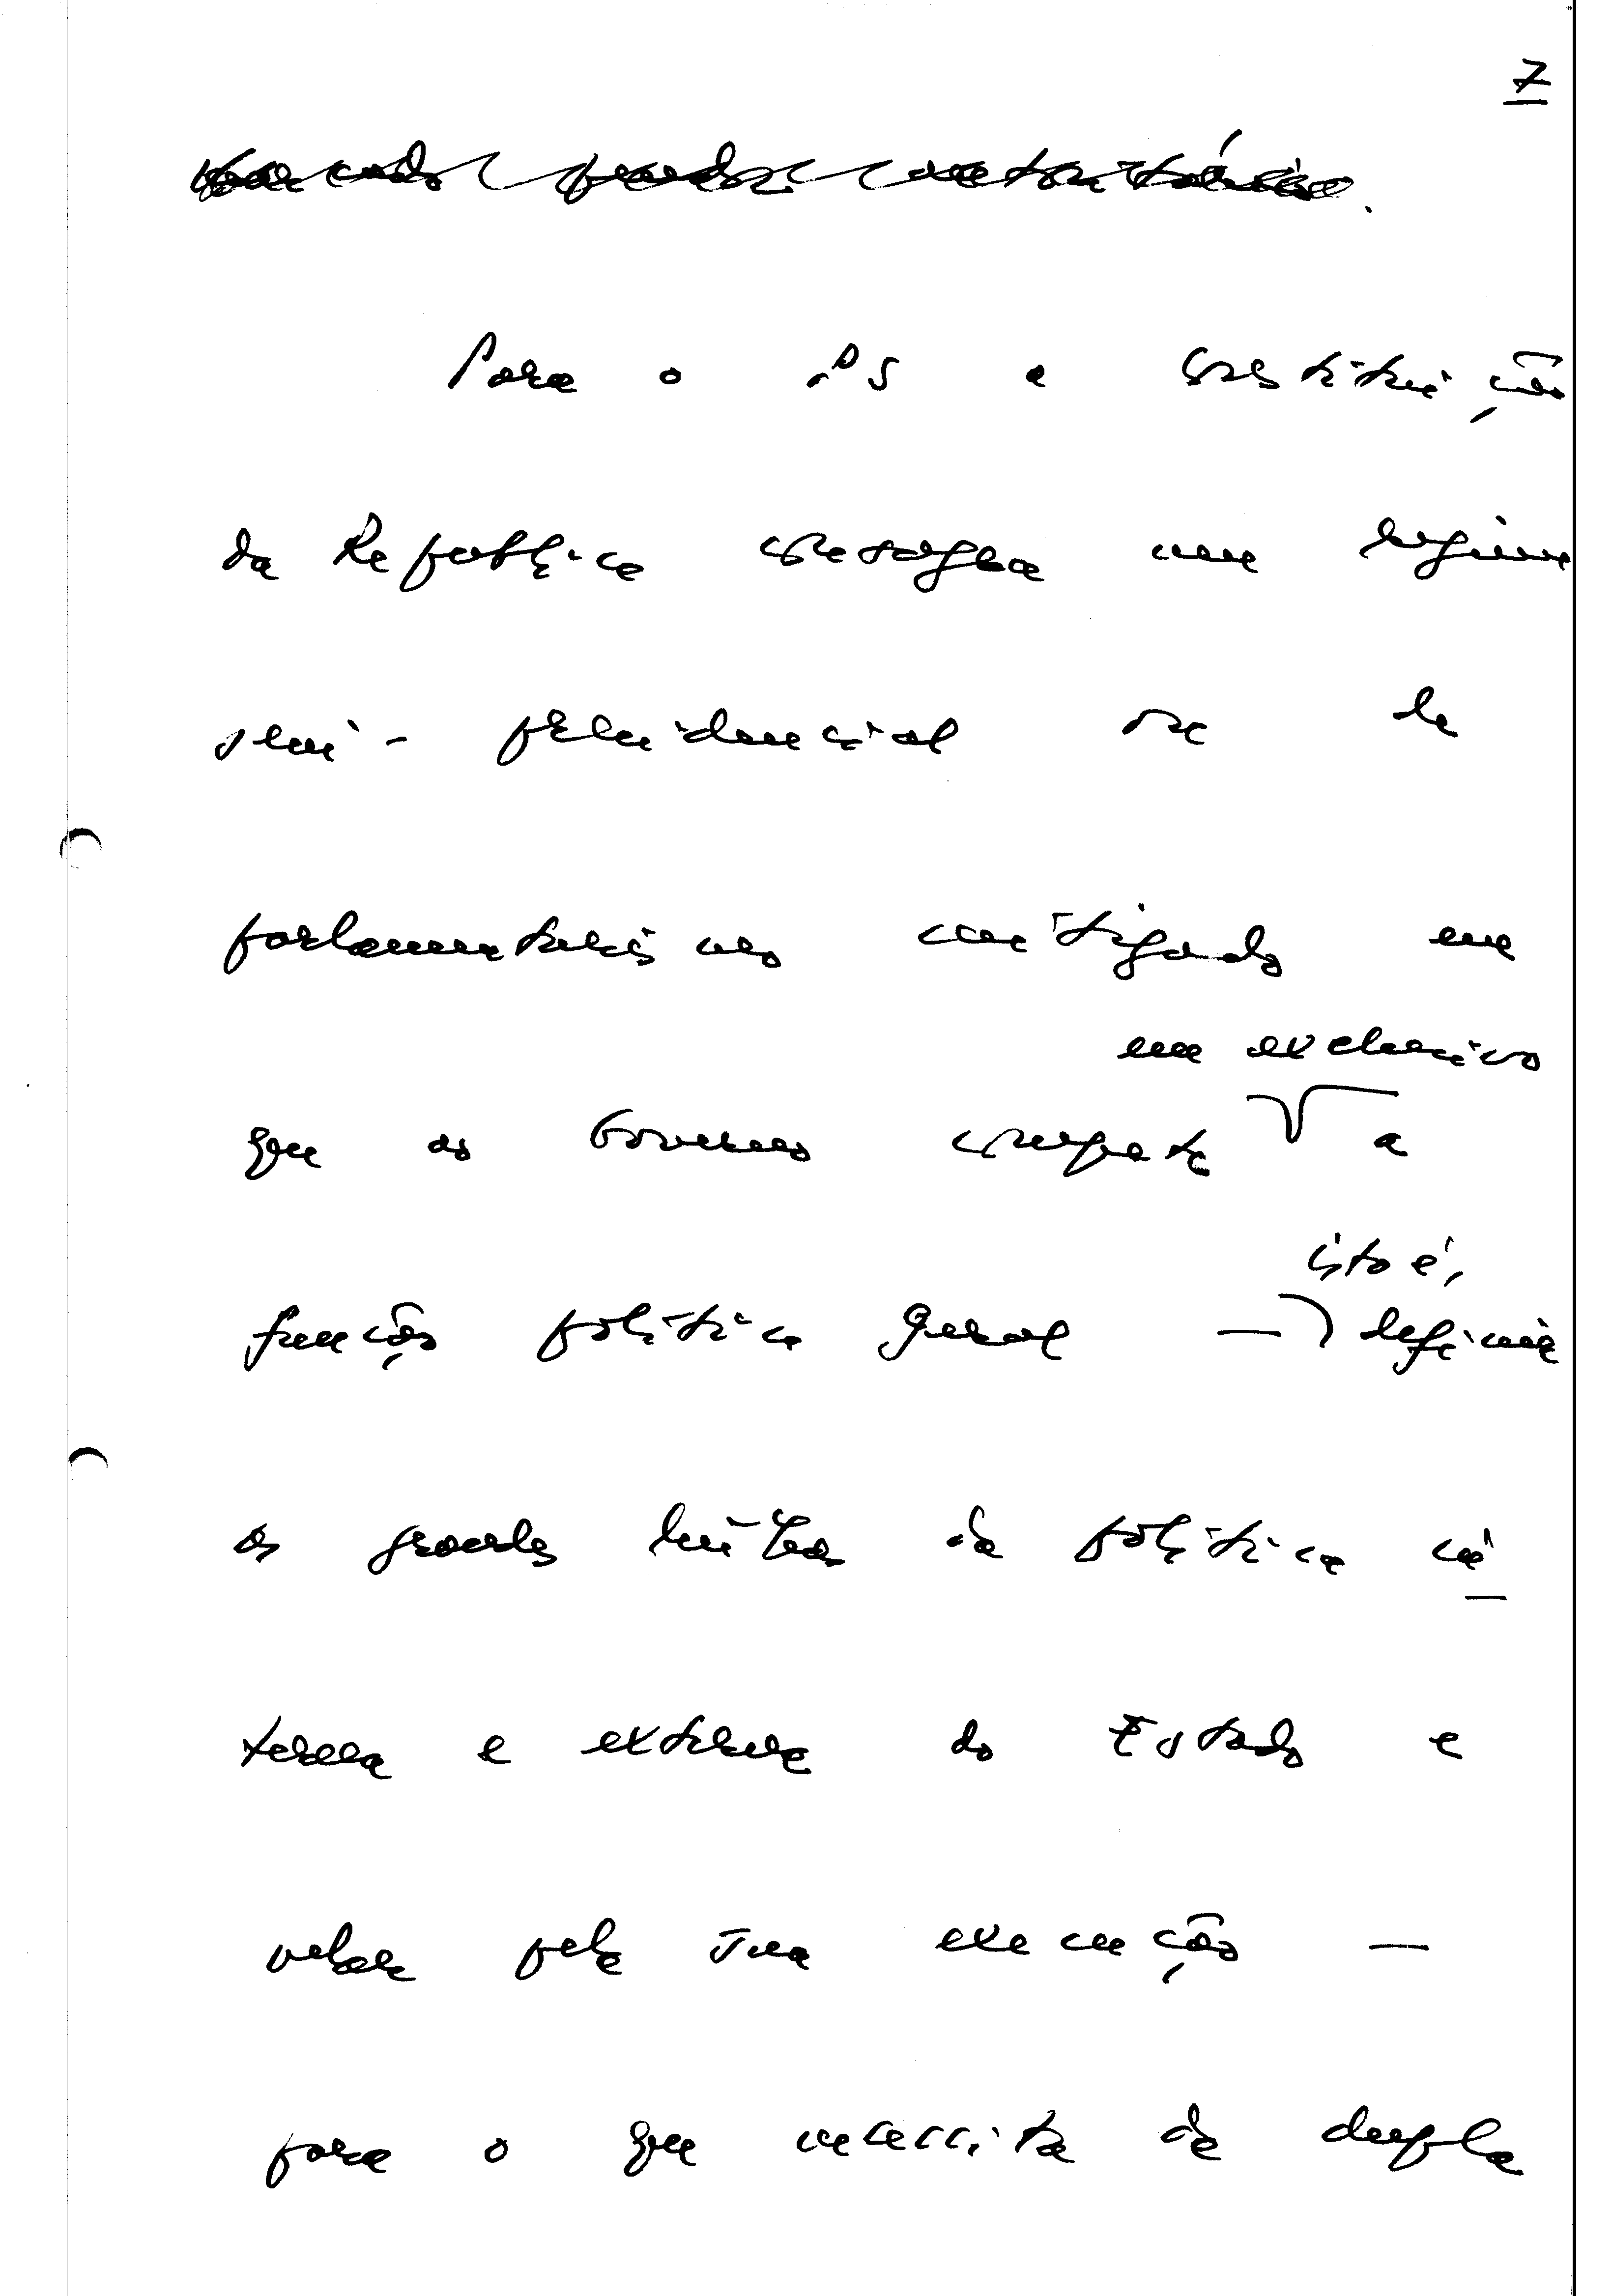 7
Para o PS a Constituição
da República consagra um regime
semi-presidencial ou de
parlamentarismo mitigado em
em exclusivo
que ao Governo compete a
isto é,
função política geral — definir
as grandes linhas da política in
terna e externa do Estado e
velar pela sua execução —
para o que necessita da dupla